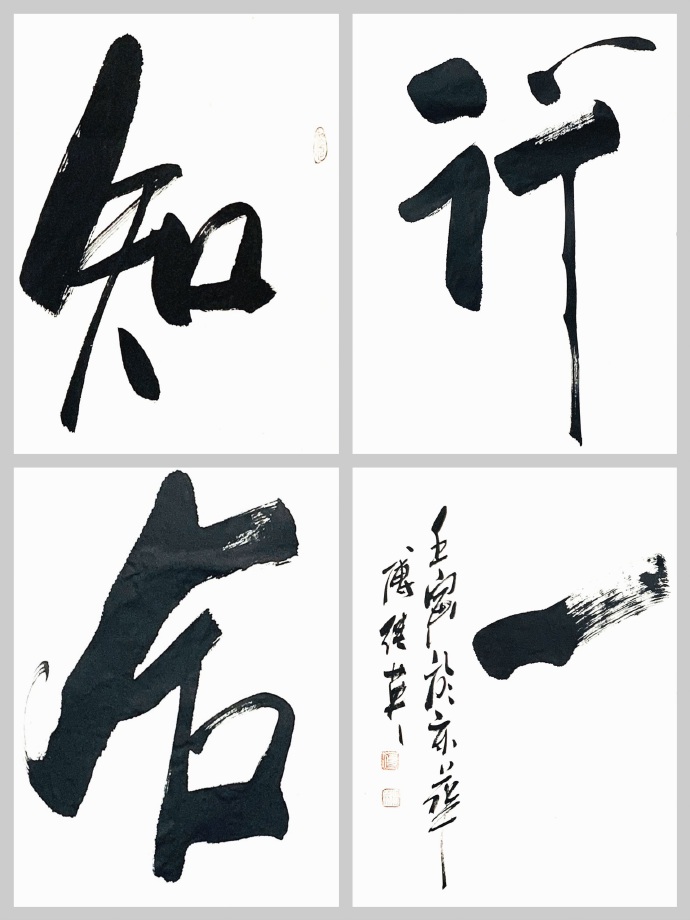 知行
合一
壬寅於京華
傅继英